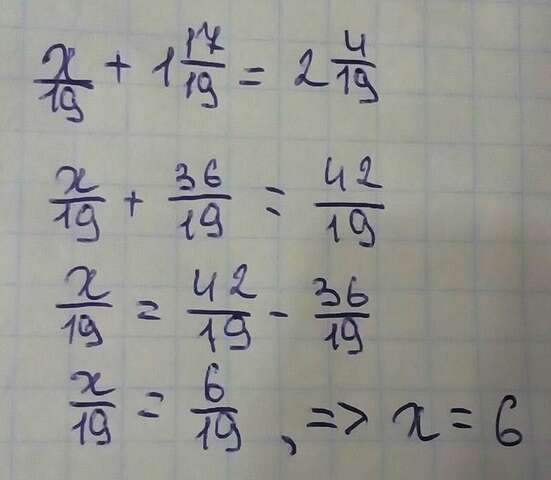 x/19 + 1 17/19 = 2 4/19
x/19 + 36/19 = 42/19
x/19 = 42/19 - 36/19
x/19 = 6/19 , => x = 6